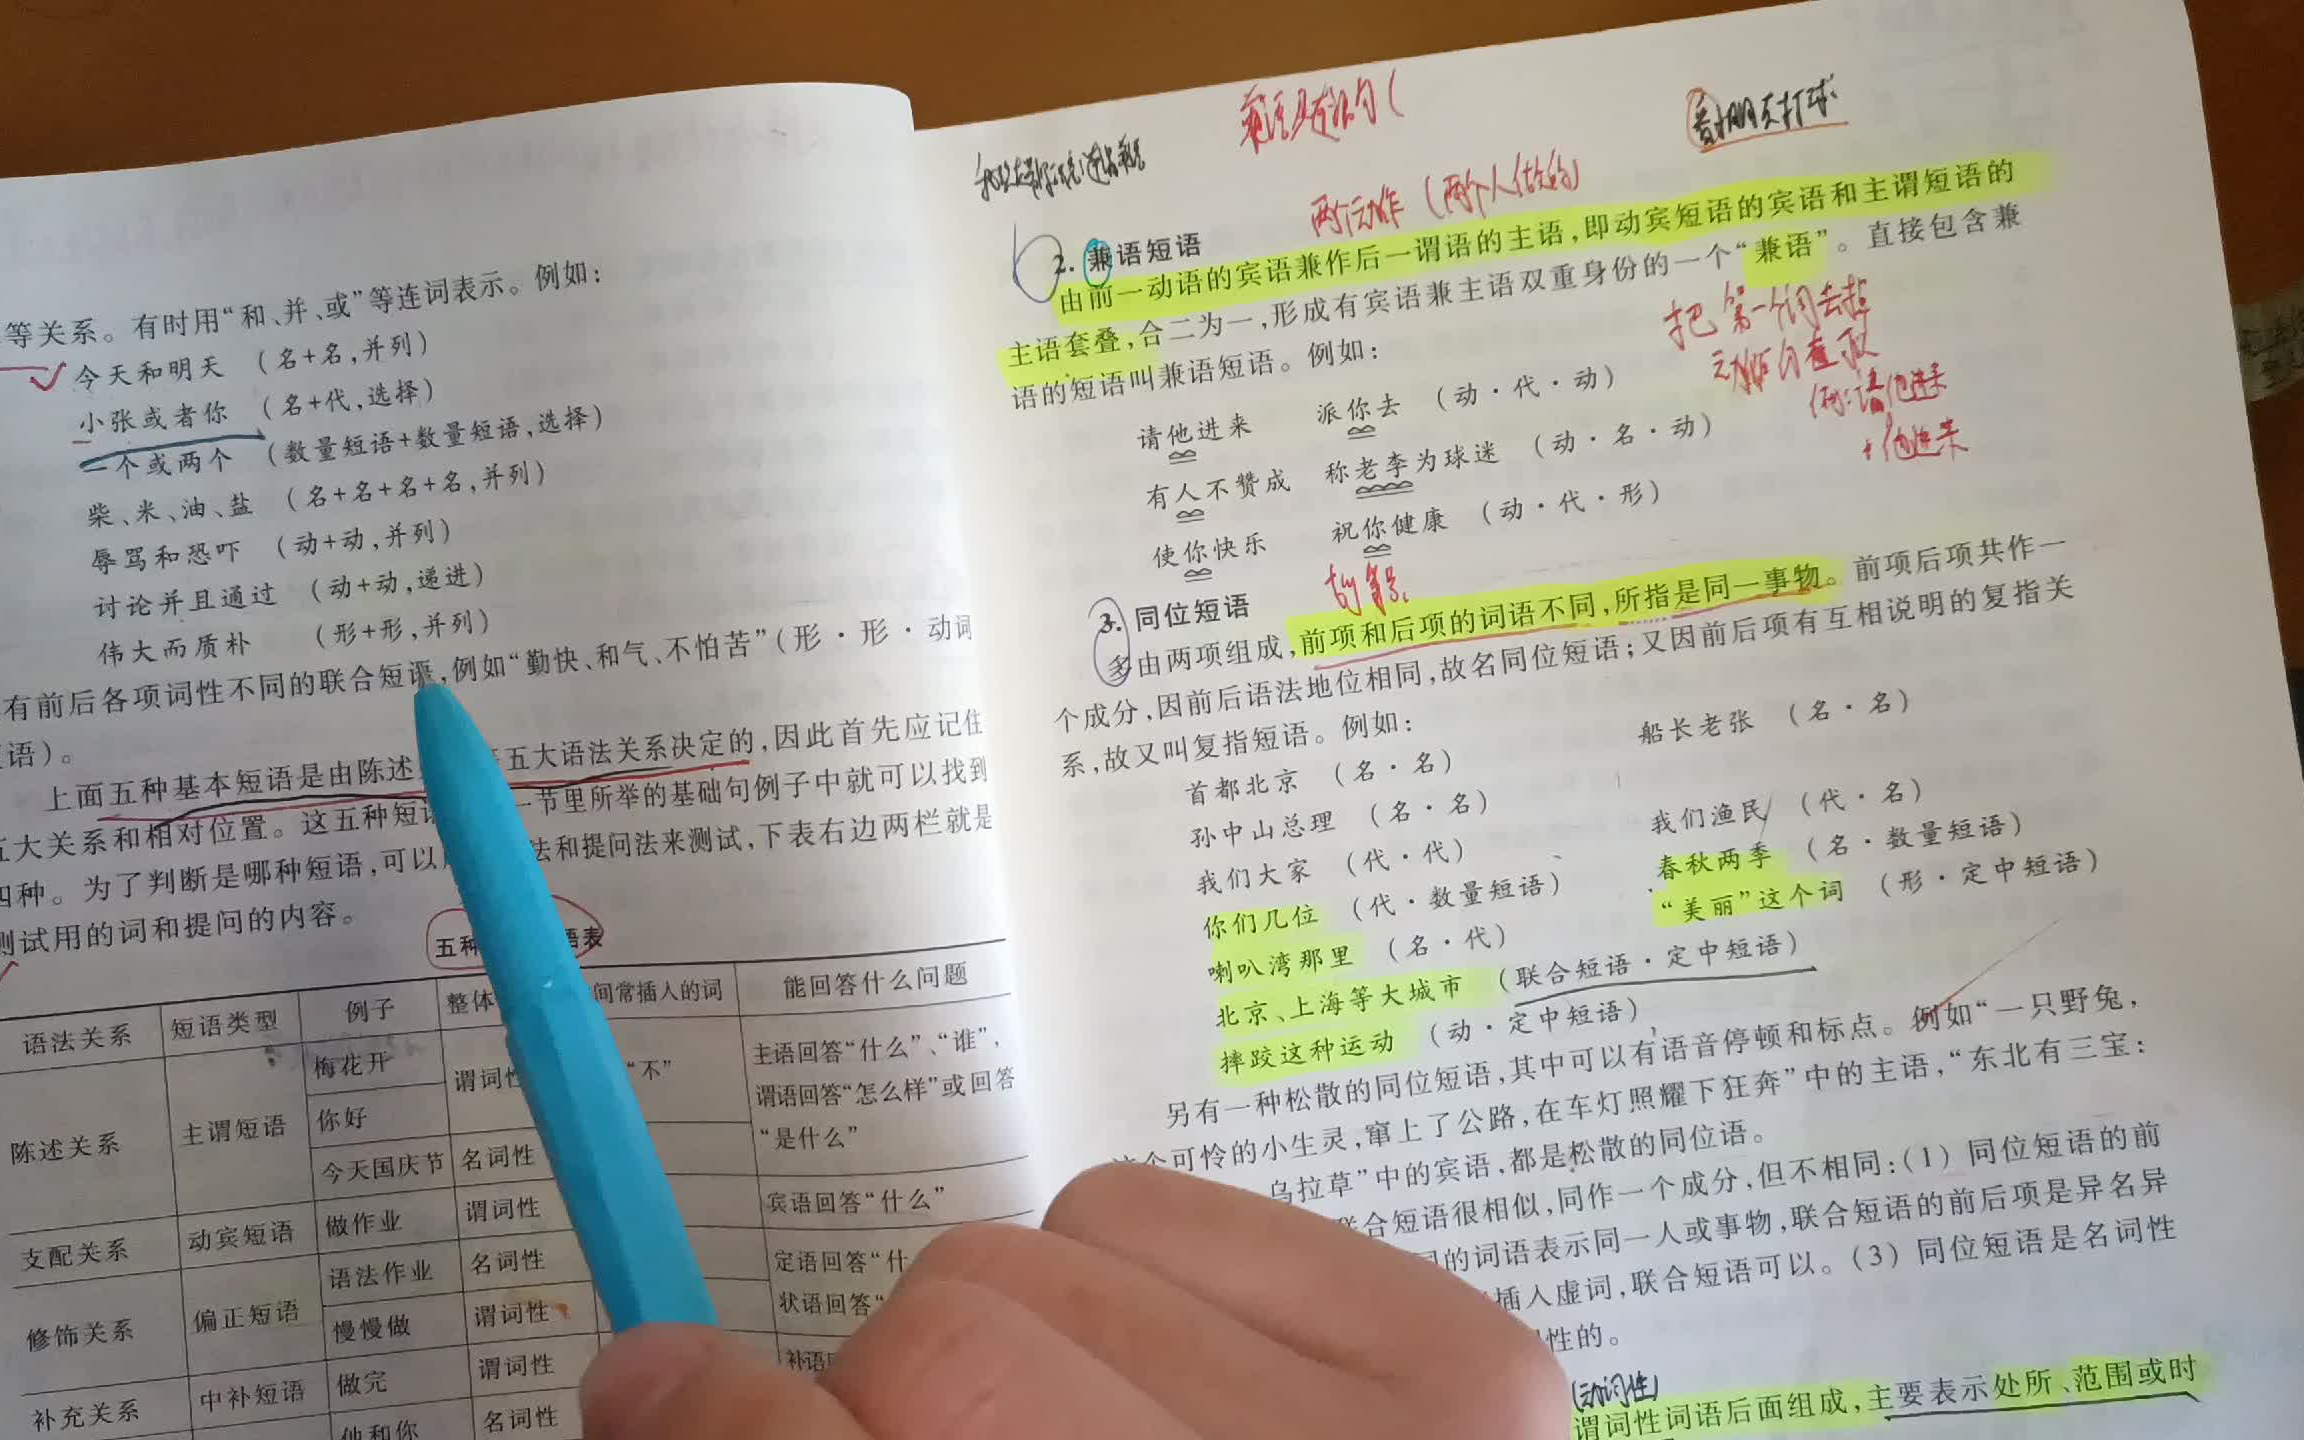 等关系。有时用“和、并、或”等连词表示。例如：
今天和明天 （名+名，并列）
小张或者你 （名+代，选择）
一个或两个 （数量短语+数量短语，选择）
柴、米、油、盐 （名+名+名+名，并列）
辱骂和恐吓 （动+动，并列）
讨论并且通过 （动+动，递进）
伟大而质朴 （形+形，并列）
有前后各项词性不同的联合短语，例如“勤快、和气、不怕苦”（形·形·动词
语）。
上面五种基本短语是由陈述 五大语法关系决定的，因此首先应记住
五大关系和相对位置。这五种短语 一节里所举的基础句例子中就可以找到
四种。为了判断是哪种短语，可以 法和提问法来测试，下表右边两栏就是
测试用的词和提问的内容。
五种 语表
语法关系 短语类型 例子 整体 间常插入的词 能回答什么问题
陈述关系 主谓短语 梅花开 谓词性 “不” 主语回答“什么”、“谁”，
你好 谓语回答“怎么样”或回答
今天国庆节 名词性 “是什么”
支配关系 动宾短语 做作业 谓词性 宾语回答“什么”
修饰关系 偏正短语 语法作业 名词性 定语回答“什
慢慢做 谓词性 状语回答“
补充关系 中补短语 做完 谓词性 补语
他和你 名词性
两个动作（两个人做的）
2. 兼语短语
由前一动语的宾语兼作后一谓语的主语，即动宾短语的宾语和主谓短语的
主语套叠，合二为一，形成有宾语兼主语双重身份的一个“兼语”。直接包含兼
语的短语叫兼语短语。例如：
把第一个词去掉
请他进来 派你去 （动·代·动）
例：请他进来
他进来
有人不赞成 称老李为球迷 （动·名·动）
使你快乐 祝你健康 （动·代·形）
3. 同位短语
多由两项组成，前项和后项的词语不同，所指是同一事物。前项后项共作一
个成分，因前后语法地位相同，故名同位短语；又因前后项有互相说明的复指关
系，故又叫复指短语。例如：
首都北京 （名·名） 船长老张 （名·名）
孙中山总理 （名·名）
我们大家 （代·代） 我们渔民 （代·名）
你们几位 （代·数量短语） 春秋两季 （名·数量短语）
喇叭湾那里 （名·代） “美丽”这个词 （形·定中短语）
北京、上海等大城市 （联合短语·定中短语）
摔跤这种运动 （动·定中短语）
另有一种松散的同位短语，其中可以有语音停顿和标点。例如“一只野兔，
这个可怜的小生灵，窜上了公路，在车灯照耀下狂奔”中的主语，“东北有三宝：
乌拉草”中的宾语，都是松散的同位语。
联合短语很相似，同作一个成分，但不相同：（1）同位短语的前
同的词语表示同一人或事物，联合短语的前后项是异名异
插入虚词，联合短语可以。（3）同位短语是名词性
性的。
（动词性）
谓词性词语后面组成，主要表示处所、范围或时